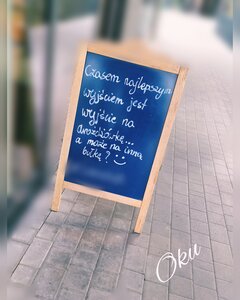 Czasem najlepszym
wyjściem jest
wyjście na
drożdżówkę...
a może na inną
bułkę? :)
Oku